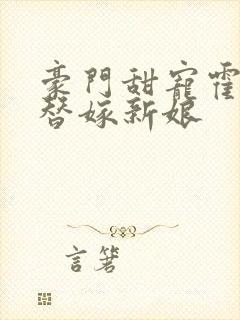 豪門甜寵霍
替嫁新娘
言箬